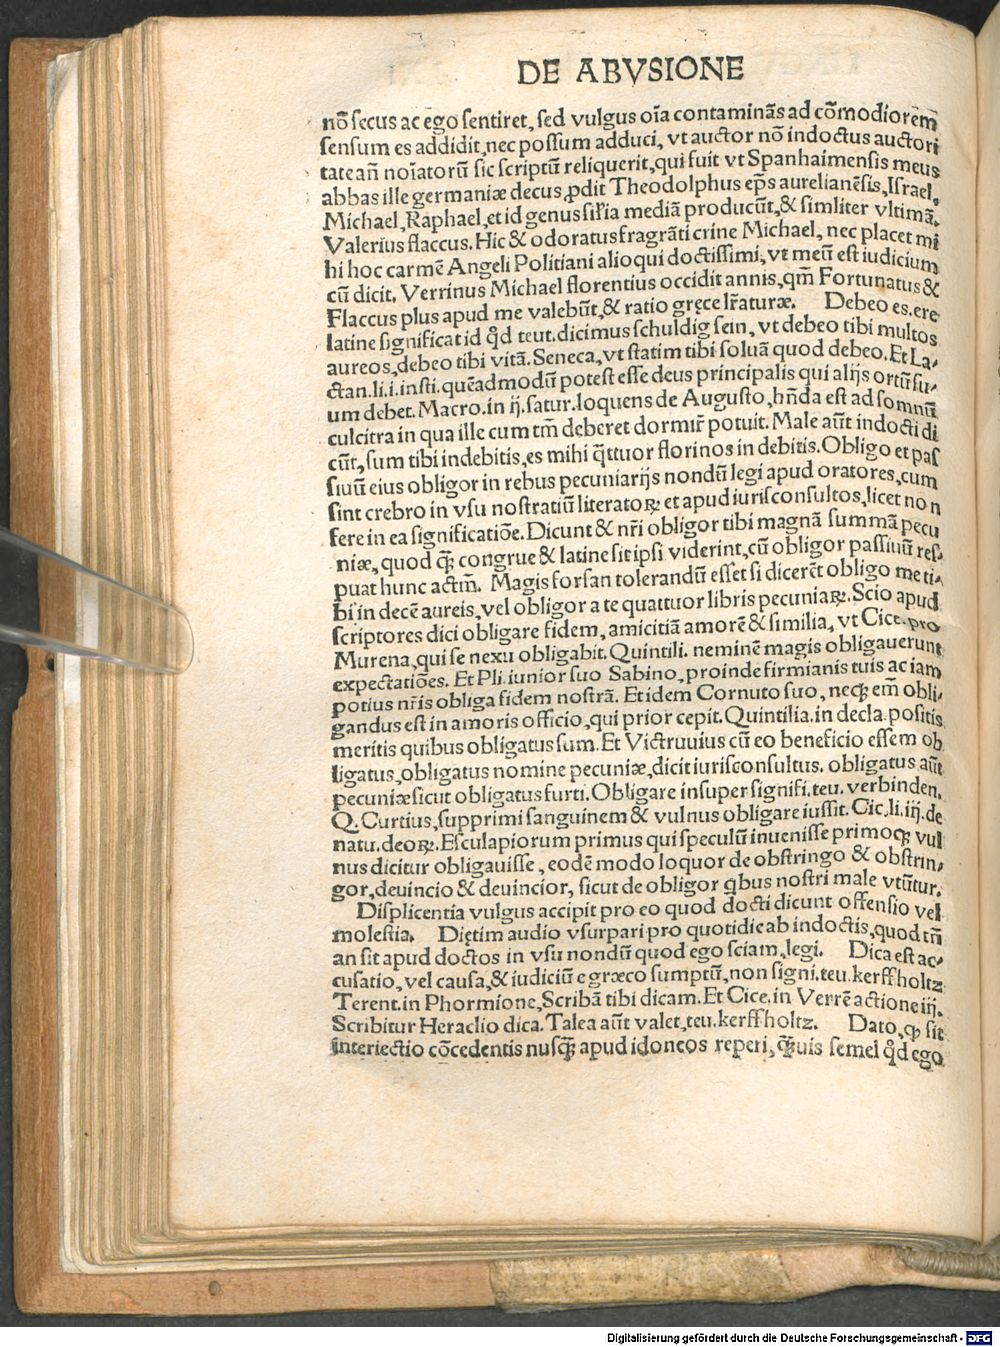 DE ABVSIONE
nõ secus ac ego sentiret, sed vulgus oĩa contaminãs ad cõmodiorem̃
sensum es addidit, nec possum adduci, vt auctor nõ indoctus auctori
tate añ noĩatorũ sic scriptũ reliquerit, qui fuit vt Spanhaimensis meus
abbas ille germaniæ decus, ꝓdit Theodolphus ep̃s aurelianẽsis, Israel,
Michael, Raphael, et id genus sil̃ia mediã producũt, & simliter vltimã.
Valerius flaccus. Hic & odoratus fragrãti crine Michael, nec placet mi
hi hoc carmẽ Angeli Politiani alioqui doctissimi, vt meũ est iudicium
cũ dicit. Verrinus Michael florentius occidit annis, qm̃ Fortunatus &
Flaccus plus apud me valebũt, & ratio gręce lr̃aturæ. Debeo es. ere
latine significat id qđ teut. dicimus schuldig sein, vt debeo tibi multos
aureos, debeo tibi vitã. Seneca, vt statim tibi soluã quod debeo. Et La⸗
ctan. li. i. insti. quẽadmodũ potest esse deus principalis qui alijs ortũ su⸗
um debet. Macro. in ij. satur. loquens de Augusto, hñda est ad somnũ
culcitra in qua ille cum tm̃ deberet dormir̃ potuit. Male aũt indocti di
cũt, sum tibi indebitis, es mihi q̃ttuor florinos in debitis. Obligo et pas
siuũ eius obligor in rebus pecuniarijs nondũ legi apud oratores, cum
sint crebro in vsu nostratiũ literatoꝝ et apud iurisconsultos, licet non
fere in ea significatiõe. Dicunt & nr̃i obligor tibi magnã summã pecu
niæ, quod q̃ congrue & latine sit ipsi viderint, cũ obligor passiuũ res⸗
puat hunc actm̃. Magis forsan tolerandũ esset si dicerẽt obligo me ti⸗
bi in decẽ aureis, vel obligor a te quattuor libris pecuniaꝝ. Scio apud
scriptores dici obligare fidem, amicitiã amorẽ & similia, vt Cice. pro
Murena, qui se nexu obligabit. Quintili. neminẽ magis obligauerunt
expectatiões. Et Pli. iunior suo Sabino, proinde firmianis tuis ac iam
potius nr̃is obliga fidem nostrã. Et idem Cornuto suo, necꝫ em̃ obli⸗
gandus est in amoris officio, qui prior cepit. Quintilia. in decla. positis
meritis quibus obligatus sum. Et Victruuius cũ eo beneficio essem ob
ligatus, obligatus nomine pecuniæ, dicit iurisconsultus. obligatus aũt
pecuniæ sicut obligatus furti. Obligare insuper signifi. teu. verbinden.
Q. Curtius, supprimi sanguinem & vulnus obligare iussit. Cic. li. iij. de
natu. deoꝝ. Esculapiorum primus qui speculũ inuenisse primocꝫ vul
nus dicitur obligauisse, eodẽ modo loquor de obstringo & obstrin⸗
gor, deuincio & deuincior, sicut de obligor q̃bus nostri male vtũtur.
Displicentia vulgus accipit pro eo quod docti dicunt offensio vel
molestia. Diętim audio vsurpari pro quotidie ab indoctis, quod tñ
an sit apud doctos in vsu nondũ quod ego sciam, legi. Dica est ac⸗
cusatio, vel causa, & iudiciũ e græco sumptũ, non signi. teu. kerffholtz
Terent. in Phormione, Scribã tibi dicam. Et Cice. in Verrẽ actione iij.
Scribitur Heraclio dica. Talea aũt valet, teu. kerffholtz. Dato, ꝙ sit
interiectio cõcedentis nusq̃ apud idoneos reperi, q̃uis semel qđ ego
Digitalisierung gefördert durch die Deutsche Forschungsgemeinschaft - DFG